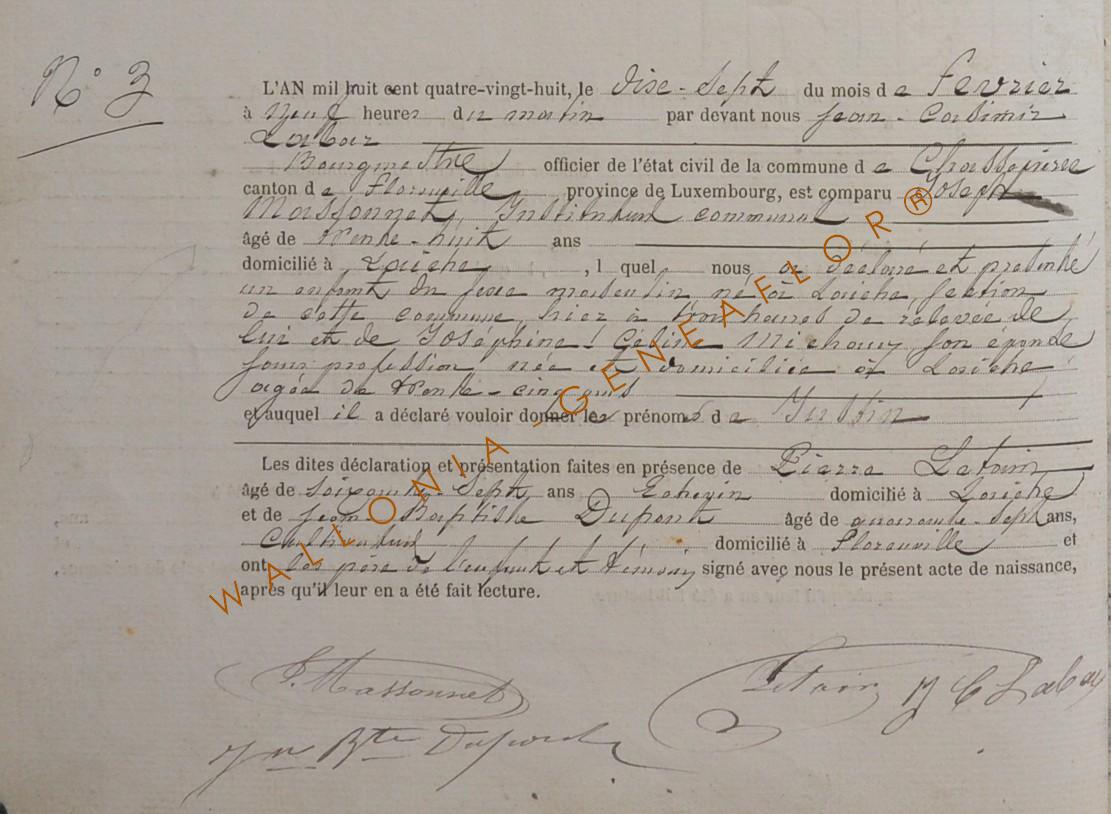 N° 3
L'AN mil huit cent quatre-vingt-huit, le dise-sept du mois de fevrier
à neuf heures du matin par devant nous Jean-Casimir
Labar
Bourgmestre officier de l'état civil de la commune de Chassepierre
canton de Florenville province de Luxembourg, est comparu Joseph
Massonnet, Instituteur communal
âgé de trente-huit ans
domicilié à Laiche, l quel nous a déclaré et présenté
un enfant du sexe masculin né à Laiche section
de cette commune, hier à trois heures de relevée de
lui et de Joséphine Céline Michaux, son épouse
sans profession, née et domiciliée à Laiche
agée de trente-cinq ans
et auquel il a déclaré vouloir donner les prénoms de Justin
Les dites déclaration et présentation faites en présence de Pierre Letaim
âgé de soixante-sept ans Echevin domicilié à Laiche
et de Jean Baptiste Dupont âgé de quarante-sept ans,
Cultivateur domicilié à Florenville et
ont les père de l'enfant et témoins signé avec nous le présent acte de naissance,
après qu'il leur en a été fait lecture.
J. Massonnet J C Labar
Jn Bte Dupont
WALLONIA - GENEAFLOR ®